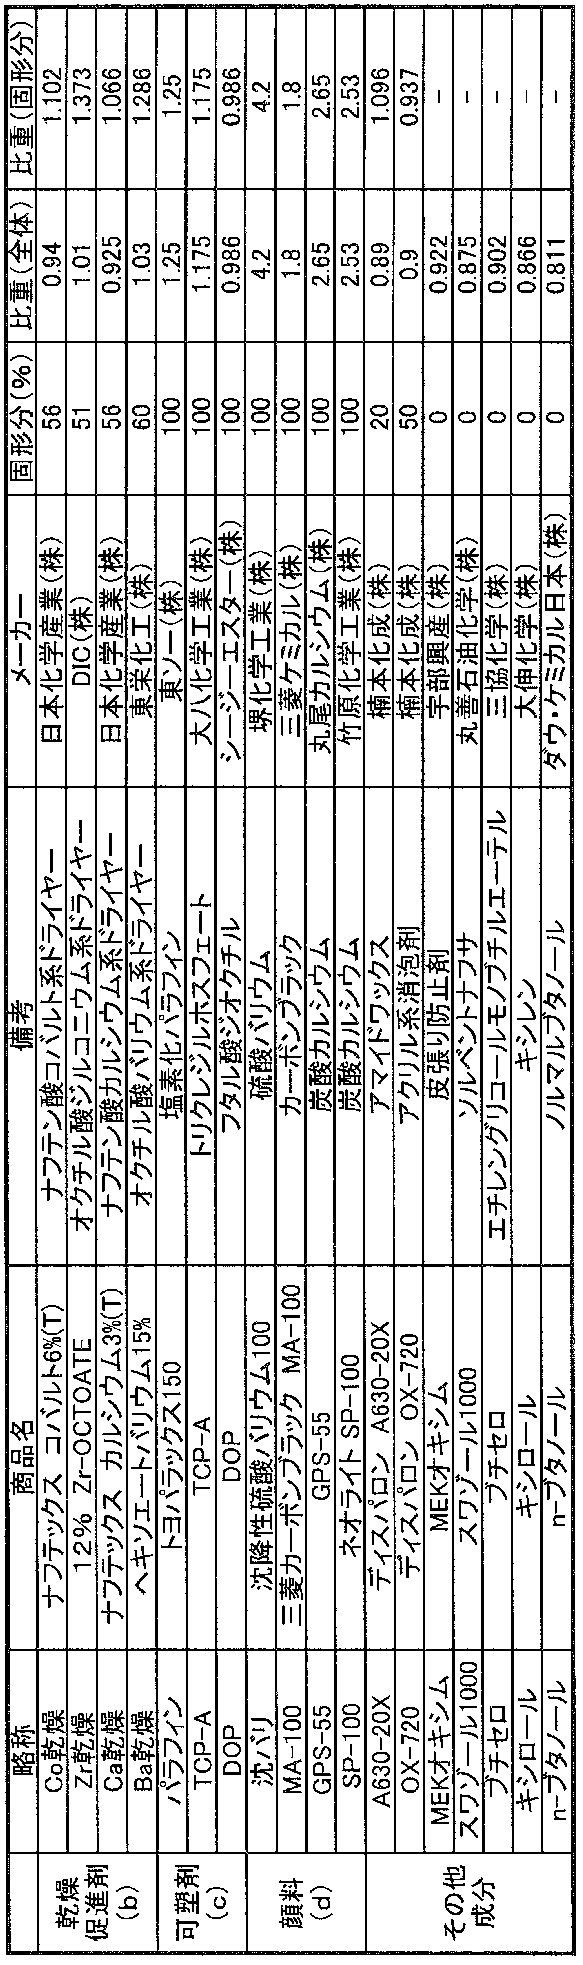 略称 商品名 備考 メーカー 固形分(%) 比重(全体) 比重(固形分)
乾燥促進剤(b) Co乾燥 ナフテックス コバルト6%(T) ナフテン酸コバルト系ドライヤー 日本化学産業(株) 56 0.94 1.102
Zr乾燥 12% Zr-OCTOATE オクチル酸ジルコニウム系ドライヤー DIC(株) 51 1.01 1.373
Ca乾燥 ナフテックス カルシウム3%(T) ナフテン酸カルシウム系ドライヤー 日本化学産業(株) 56 0.925 1.066
Ba乾燥 ヘキソエートバリウム15% オクチル酸バリウム系ドライヤー 東栄化工(株) 60 1.03 1.286
可塑剤(c) パラフィン トヨパラックス150 塩素化パラフィン 東ソー(株) 100 1.25 1.25
TCP-A TCP-A トリクレジルホスフェート 大八化学工業(株) 100 1.175 1.175
DOP DOP フタル酸ジオクチル シージーエスター(株) 100 0.986 0.986
顔料(d) 沈バリ 沈降性硫酸バリウム100 硫酸バリウム 堺化学工業(株) 100 4.2 4.2
MA-100 三菱カーボンブラック MA-100 カーボンブラック 三菱ケミカル(株) 100 1.8 1.8
GPS-55 GPS-55 炭酸カルシウム 丸尾カルシウム(株) 100 2.65 2.65
SP-100 ネオライト SP-100 炭酸カルシウム 竹原化学工業(株) 100 2.53 2.53
その他成分 A630-20X ディスパロン A630-20X アマイドワックス 楠本化成(株) 20 0.89 1.096
OX-720 ディスパロン OX-720 アクリル系消泡剤 楠本化成(株) 50 0.9 0.937
MEKオキシム MEKオキシム 皮張り防止剤 宇部興産(株) 0 0.922 -
スワゾール1000 スワゾール1000 ソルベントナフサ 丸善石油化学(株) 0 0.875 -
ブチセロ ブチセロ エチレングリコールモノブチルエーテル 三協化学(株) 0 0.902 -
キシロール キシロール キシレン 大伸化学(株) 0 0.866 -
n-ブタノール n-ブタノール ノルマルブタノール ダウ・ケミカル日本(株) 0 0.811 -